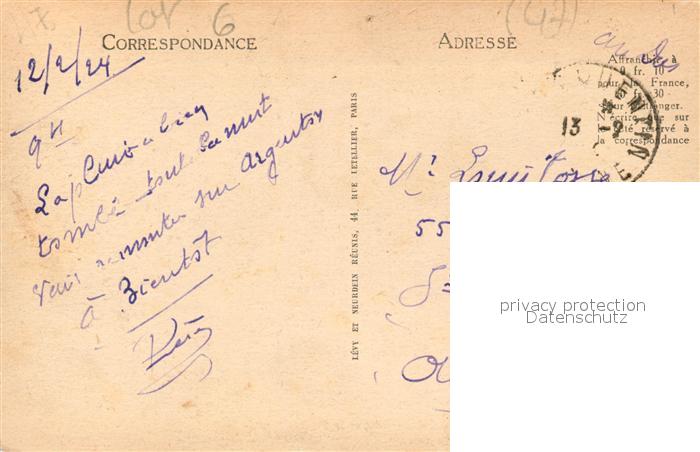 lot 6
(47)
CORRESPONDANCE
ADRESSE
12/2/24
9H
La pluie a bien
tombé toute la nuit
vais remonter sur Argentan
à Bientôt
Affranchir à
0 fr. 10
pour la France,
0 fr. 30
pour l'étranger.
N'écrire que sur
le côté réservé à
la correspondance
13
LÉVY ET NEURDEIN RÉUNIS, 44, RUE LETELLIER, PARIS
Mr
55
privacy protection
Datenschutz